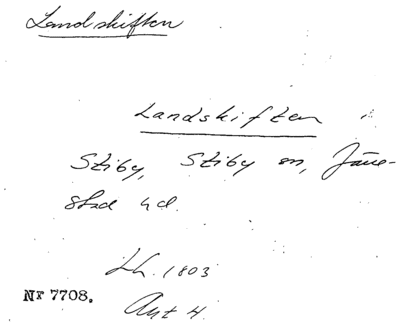 Landskiften
Landskiften i
Stiby, Stiby sn, Järre-
stad hd.
Lh. 1803
Nr 7708.
Akt 4.